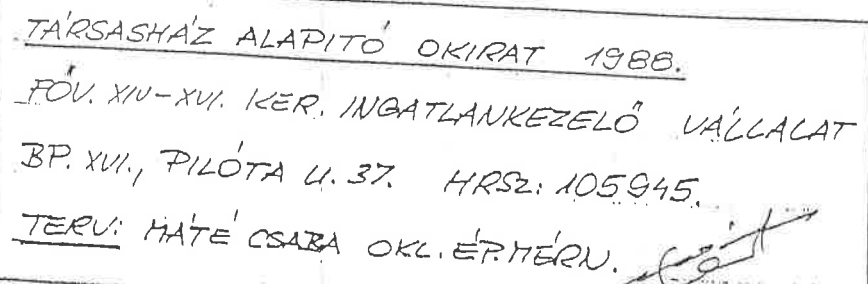 TÁRSASHÁZ ALAPITÓ OKIRAT 1988.
FŐV. XIV-XVI. KER. INGATLANKEZELŐ VÁLLALAT
BP. XVI., PILÓTA U. 37. HRSZ: 105945.
TERV: MÁTÉ CSABA OKL. ÉP. MÉRN.